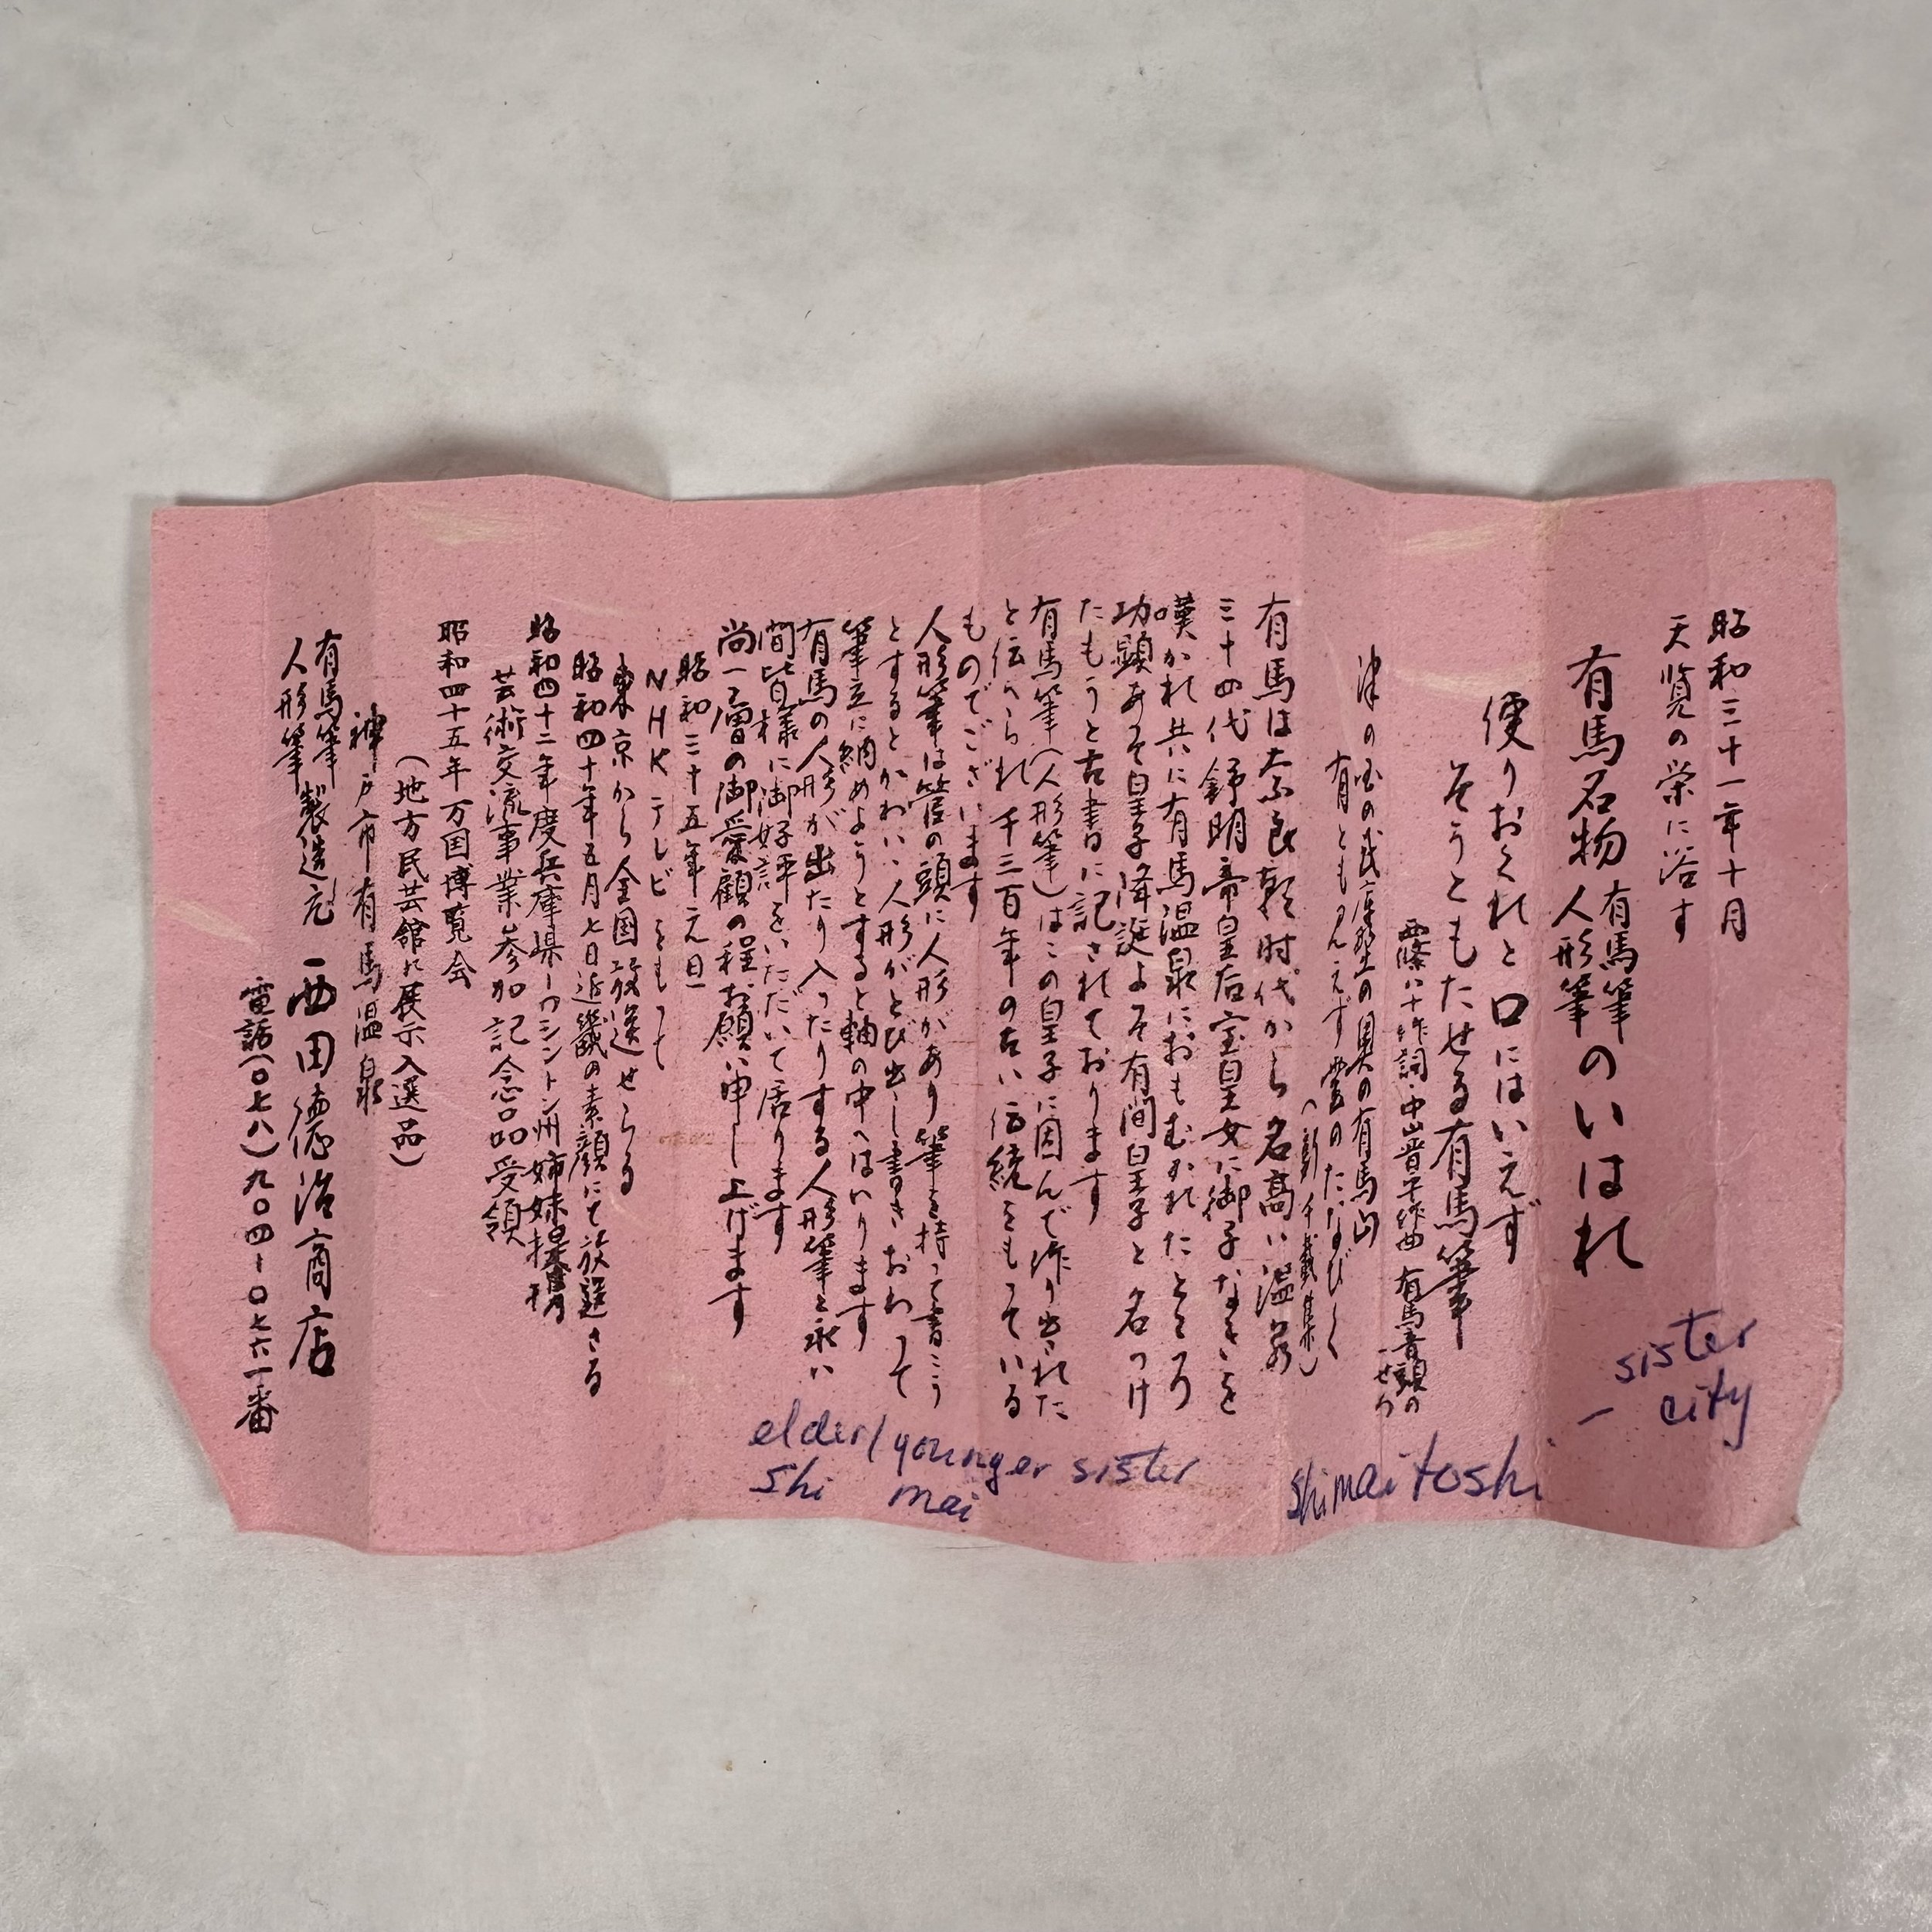 昭和三十一年十月
天覧の栄に浴す
有馬名物 有馬筆
人形筆のいはれ
便りおくれと口にはいえず
そうともたせる有馬筆
西條八十作詞・中山晋平作曲 有馬音頭の
一せつ
津の国の武庫の奥の有馬山
有とも見えず雲のたなびく
(新千載集)
有馬は奈良朝时代から名高い温泉
三十四代 舒明帝皇后宝皇女に御子なきを
嘆かれ共に有馬温泉におもむかれたところ
功顕あそ皇子降誕よそ有間皇子と名つけ
たもうと古書に記されております
有馬筆(人形筆)はこの皇子に因んで作り出された
と伝へられ千三百年の古い伝統をもつている
ものでございます
人形筆は筆の頭に人形があり筆を持って書こう
とするとかわいい人形がとび出し書きおわつて
筆立に納めようとすると軸の中へはいります
有馬の人形が出たり入つたりする人形筆と永い
間皆様に御好評をいただいて居ります
尚一層の御愛顧の程お願い申し上げます
昭和三十五年元旦
NHKテレビをもつて
東京から全国放送せらる
昭和四十年五月七日近畿の素顔にて放送さる
昭和四十二年度兵庫県ーワシントン州姉妹提携
芸術交流事業参加記念品受領
昭和四十五年万国博覧会
(地方民芸館に展示入選品)
神戸市有馬温泉
有馬筆
人形筆 製造元 西田徳治商店
電話(〇七八)九〇四ー〇七六一番
sister
- city
shimai toshi
elder/younger sister
shi mai